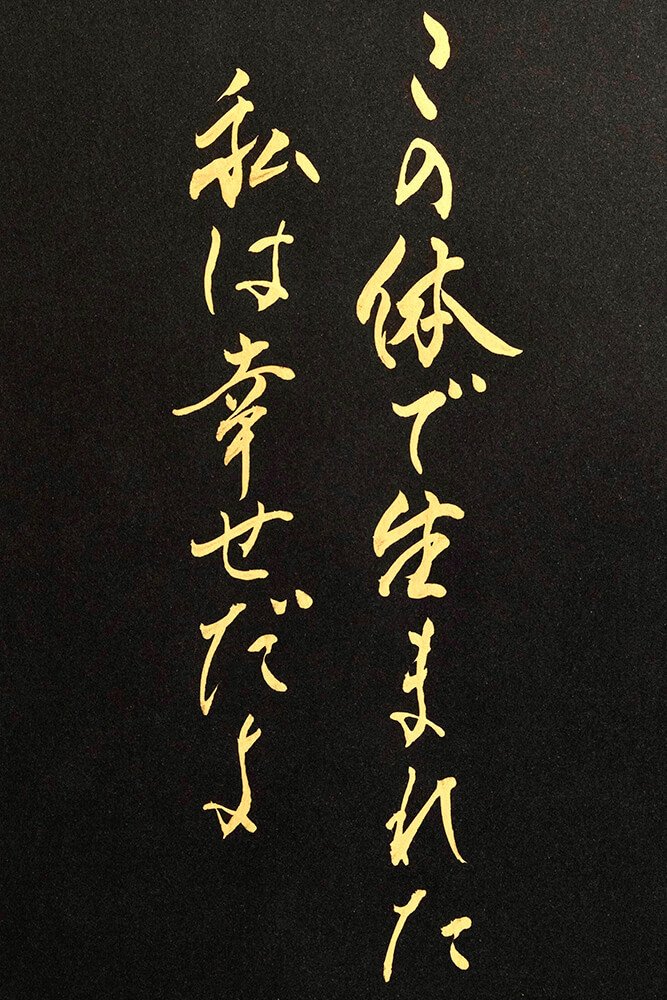 この体で生まれた
私は幸せだよ